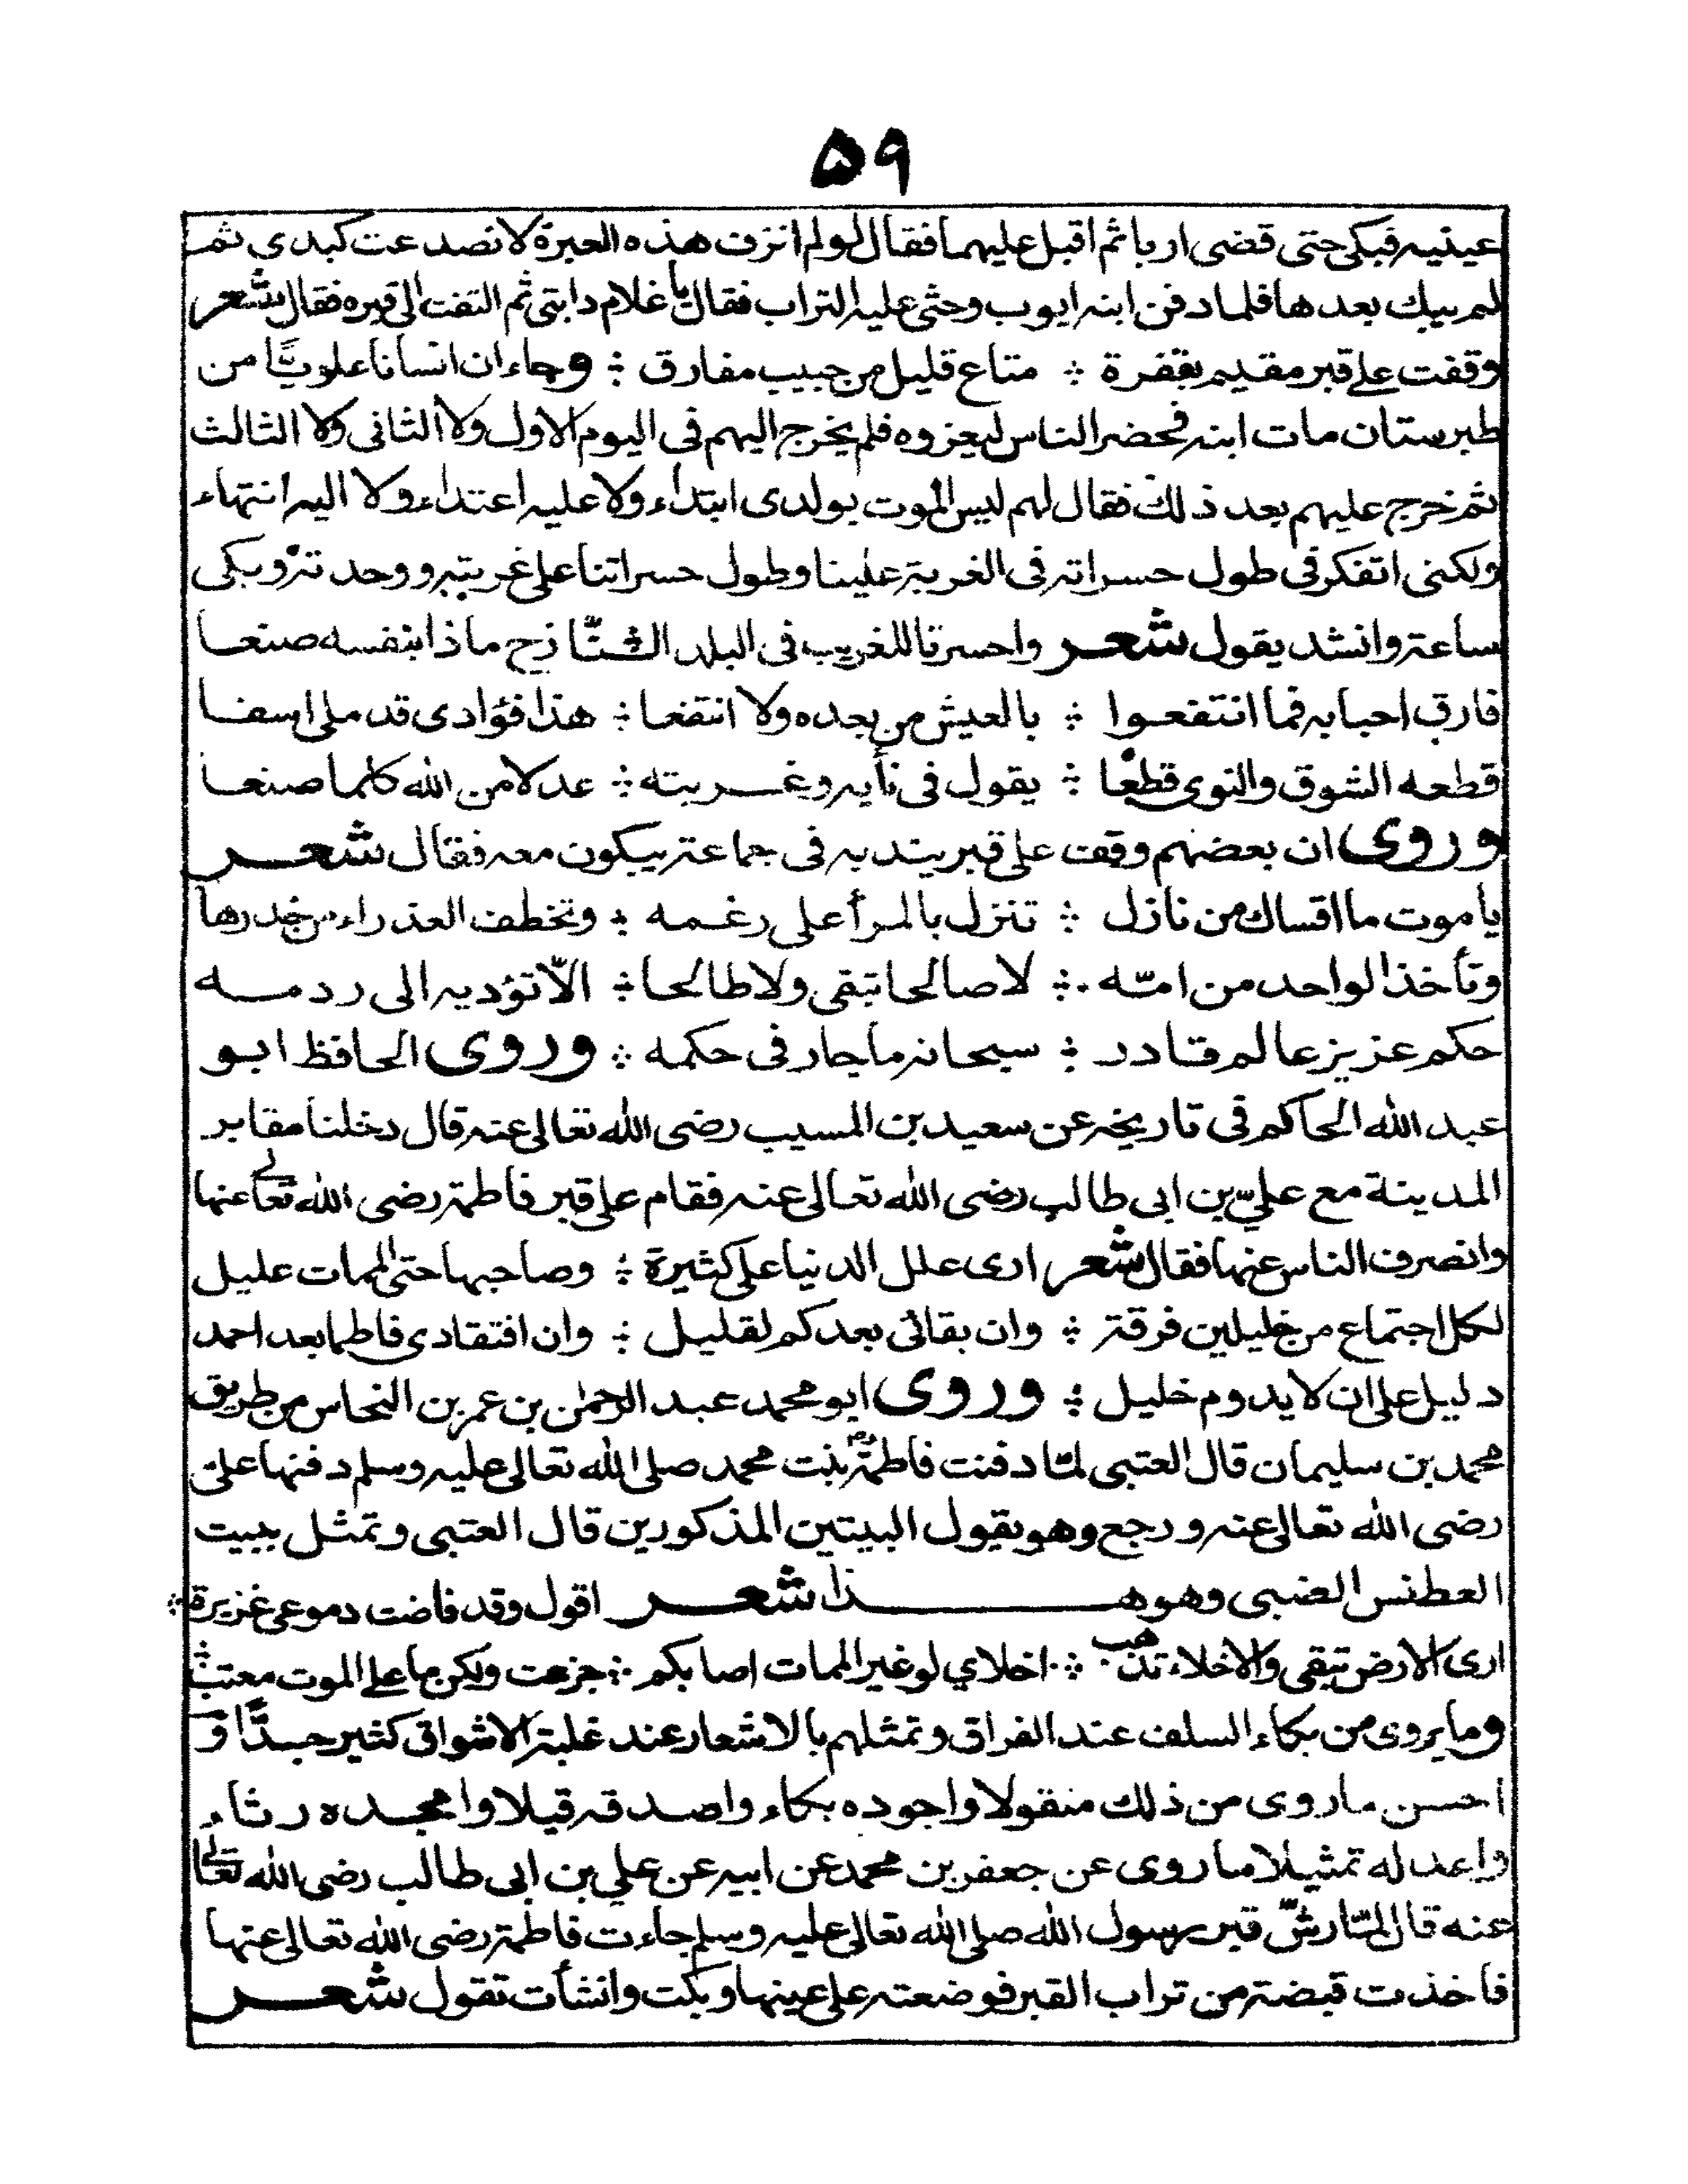 ۵۹
عينيه فبكى حتى قضى اربا ثم اقبل عليهما فقال لولم انزف هذه العبرة لانصدعت كبدى ثم
لم يبك بعدها فلما دفن ابنه ايوب وحثى عليه التراب فقال يا غلام دابتى ثم التفت الى قبره فقال شعر
وقفت على قبر مقيم بقفرة ؞ متاع قليل من حبيب مفارق ؞ وجاء ان انسانا علويًّا من
طبرستان مات ابنه فحضر الناس ليعزوه فلم يخرج اليهم فى اليوم الاول ولا الثانى ولا الثالث
ثم خرج عليهم بعد ذلك فقال لهم ليس الموت بولدى ابتداء ولا عليه اعتداء ولا اليه انتهاء
ولكنى اتفكر فى طول حسراته فى الغربة علينا وطول حسراتنا على غربته ووحدته وبكى
ساعة وانشد يقول شعر واحسرتا للغريب فى البلد الشتّازح ماذا بنفسه صنعا
فارق احبابه فما انتفعوا ؞ بالعيش من بعده ولا انتفعا ؞ هذا فؤادى قد ملى اسفا
قطعه الشوق والنوى قطعا ؞ يقول فى نأيه وغربته ؞ عدلا من الله كلما صنعا
وروى ان بعضهم وقف على قبر يندبه فى جماعة يبكون معه فقال شعر
يا موت ما اقساك من نازل ؞ تنزل بالمرأ على رغمه ؞ وتخطف العذراء من خدرها
وتأخذ الواحد من امّه ؞ لا صالحا تبقى ولا طالحا ؞ الّا تؤديه الى ردمه
حكم عزيز عالم قادر ؞ سبحانه ما جار فى حكمه ؞ وروى الحافظ ابو
عبد الله الحاكم فى تاريخه عن سعيد بن المسيب رضى الله تعالى عنه قال دخلنا مقابر
المدينة مع علىّ بن ابى طالب رضى الله تعالى عنه فقام على قبر فاطمة رضى الله تعالى عنها
وانصرف الناس عنها فقال شعر ارى علل الدنيا على كثيرة ؞ وصاحبها حتى الممات عليل
لكل اجتماع من خليلين فرقة ؞ وان بقائى بعدكم لقليل ؞ وان افتقادى فاطما بعد احمد
دليل على ان لا يدوم خليل ؞ وروى ابو محمد عبد الرحمٰن بن عمر بن النحاس من طريق
محمد بن سليمان قال العتبى لمّا دفنت فاطمة بنت محمد صلى الله تعالى عليه وسلم دفنها على
رضى الله تعالى عنه ورجع وهو يقول البيتين المذكورين قال العتبى وتمثل ببيت
العطنس الضبى وهو هذا شعر اقول وقد فاضت دموعى غزيرة ؞
ارى الارض تبقى والاخلاء تذهب ؞ اخلاي لو غير الممات اصابكم ؞ جزعت ولكن ما على الموت معتب
وما يروى من بكاء السلف عند الفراق وتمثلهم بالاشعار عند غلبة الاشواق كثير جدًّا و
احسن ما روى من ذلك منقولا واجوده بكاء واصدقه قيلا وامجده رثاء
واعدله تمثيلا ما روى عن جعفر بن محمد عن ابيه عن علي بن ابى طالب رضى الله تعالى
عنه قال لمّا رشّ قبر رسول الله صلى الله تعالى عليه وسلم جاءت فاطمة رضى الله تعالى عنها
فاخذت قبضة من تراب القبر فوضعته على عينها وبكت وانشأت تقول شعر